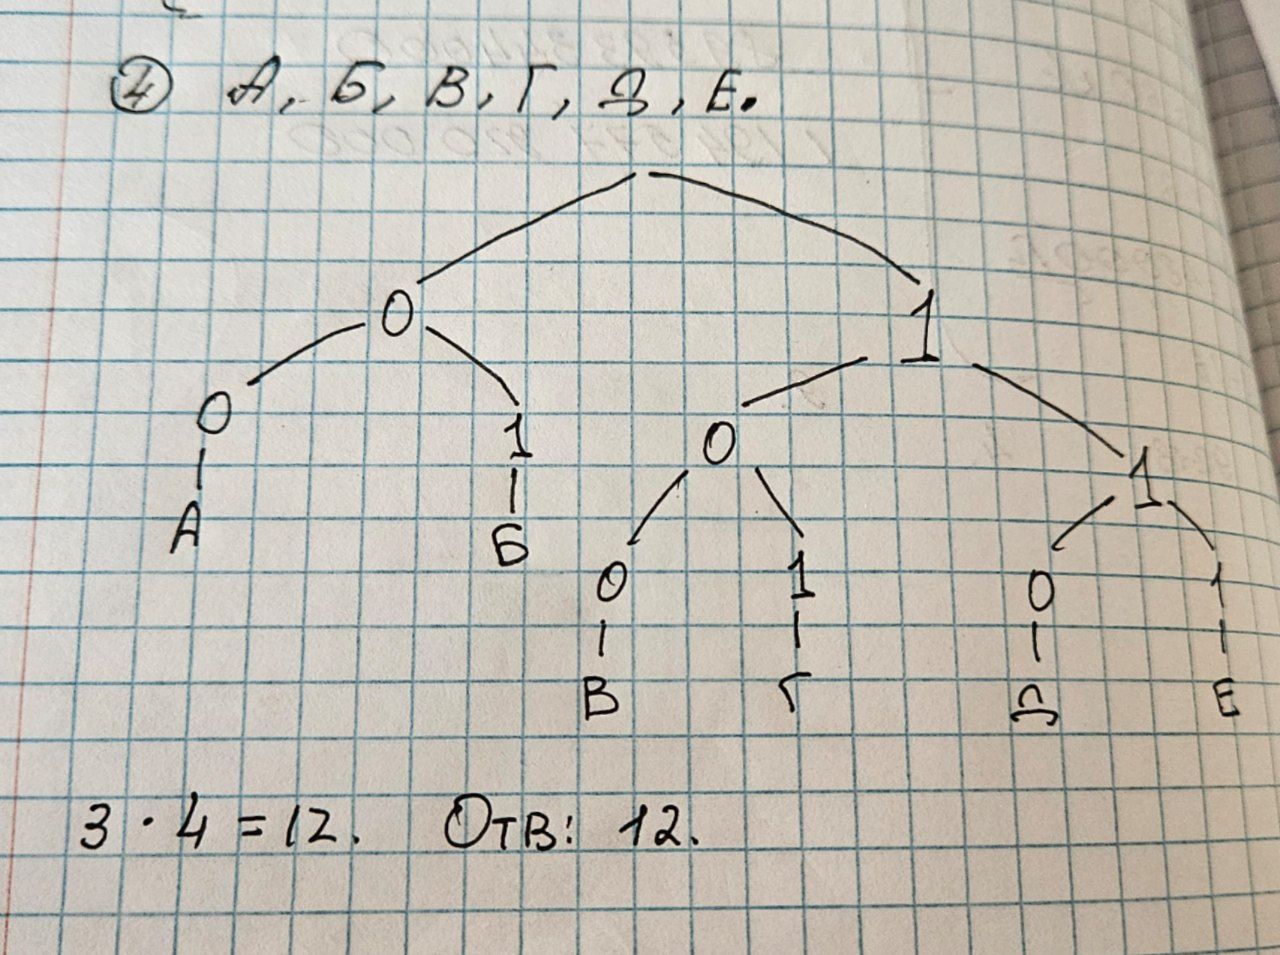 ④ А, Б, В, Г, Д, Е.
0 1
0 1 0 1
А Б 0 1 0 1
В Г Д Е
3 · 4 = 12. Отв: 12.